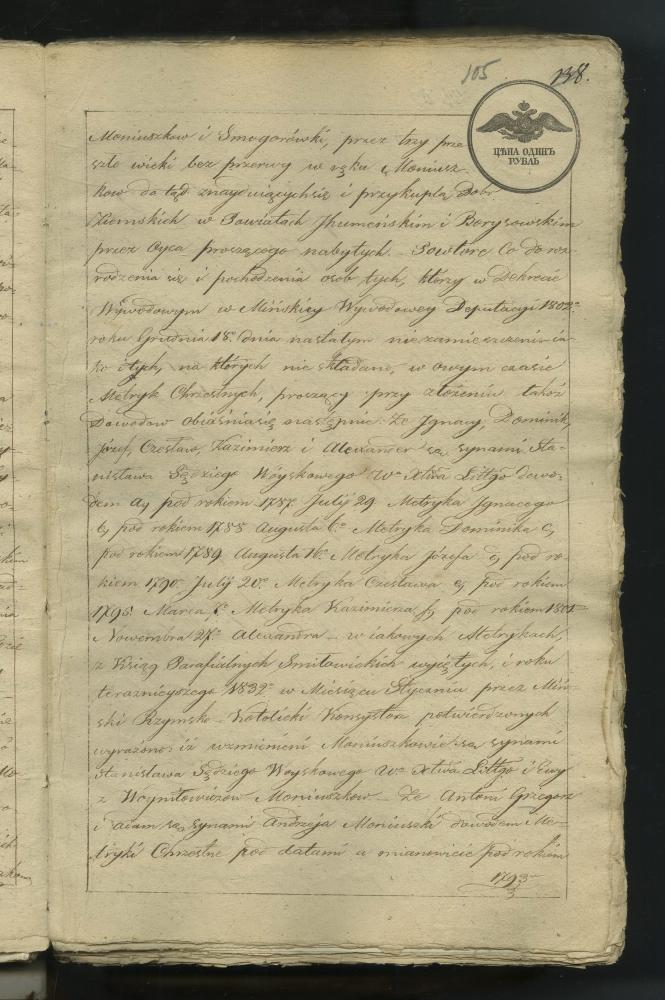 105
138.
ЦѢНА ОДИНЪ
РУБЛЬ
Moniuszkow i Smogorówki, przez trzy prze
szło wieki bez przerwy w ręku Moniusz
kow do tąd znayduiących się i przykupla Dobr
Ziemskich w Powiatach Jhumeńskim i Borysowskim
przez Oyca proszącego nabytych. Powtore Co do roz
rodzenia się i pochodzenia osob tych, ktorzy w Dekrecie
Wywodowym w Mińskiey Wywodowey Deputacyi 1802o
roku Grudnia 18o dnia nastałym niezamieszczeni ia-
ko i tych, na ktorych nie składano, w owym czasie
Metryk Chrzestnych, proszący przy złożeniu takoż
Dowodow obiaśnia się następnie: Że Jgnacy, Dominik,
Jozef, Czesław, Kazimierz i Alexander są synami Sta-
nisława Sędziego Woyskowego Wa Xtwa Littgo dowo-
dem a, pod rokiem 1787 Julij 29 Metryka Jgnacego
b, pod rokiem 1788 Augusta 6o Metryka Dominika c,
pod rokiem 1789 Augusta 16o Metryka Jozefa d, pod ro-
kiem 1790 Julij 20o Metryka Czesława e, pod rokiem
1795 Marca Metryka Kazimierza f, pod rokiem
Nowembra 27o Alexandra — w iakowych Metrykach,
z Xsiąg Parafialnych Smiłowickich wyiętych, i roku
teraznieyszego 1832o w Miesiącu Styczniu przez Miń-
ski Rzymsko-Katolicki Konsystorz potwierdzonych
wyrażono: iż wzmienieni Moniuszkowie są synami
Stanisława Sędziego Woyskowego Wa Xtwa Littgo i Ewy
z Woyniłowiczow Moniuszkow — Że Antoni Grzegorz
i Adam są synami Andrzeja Moniuszki dowodem Me-
tryki Chrzestne pod datami a mianowicie pod rokiem
1793